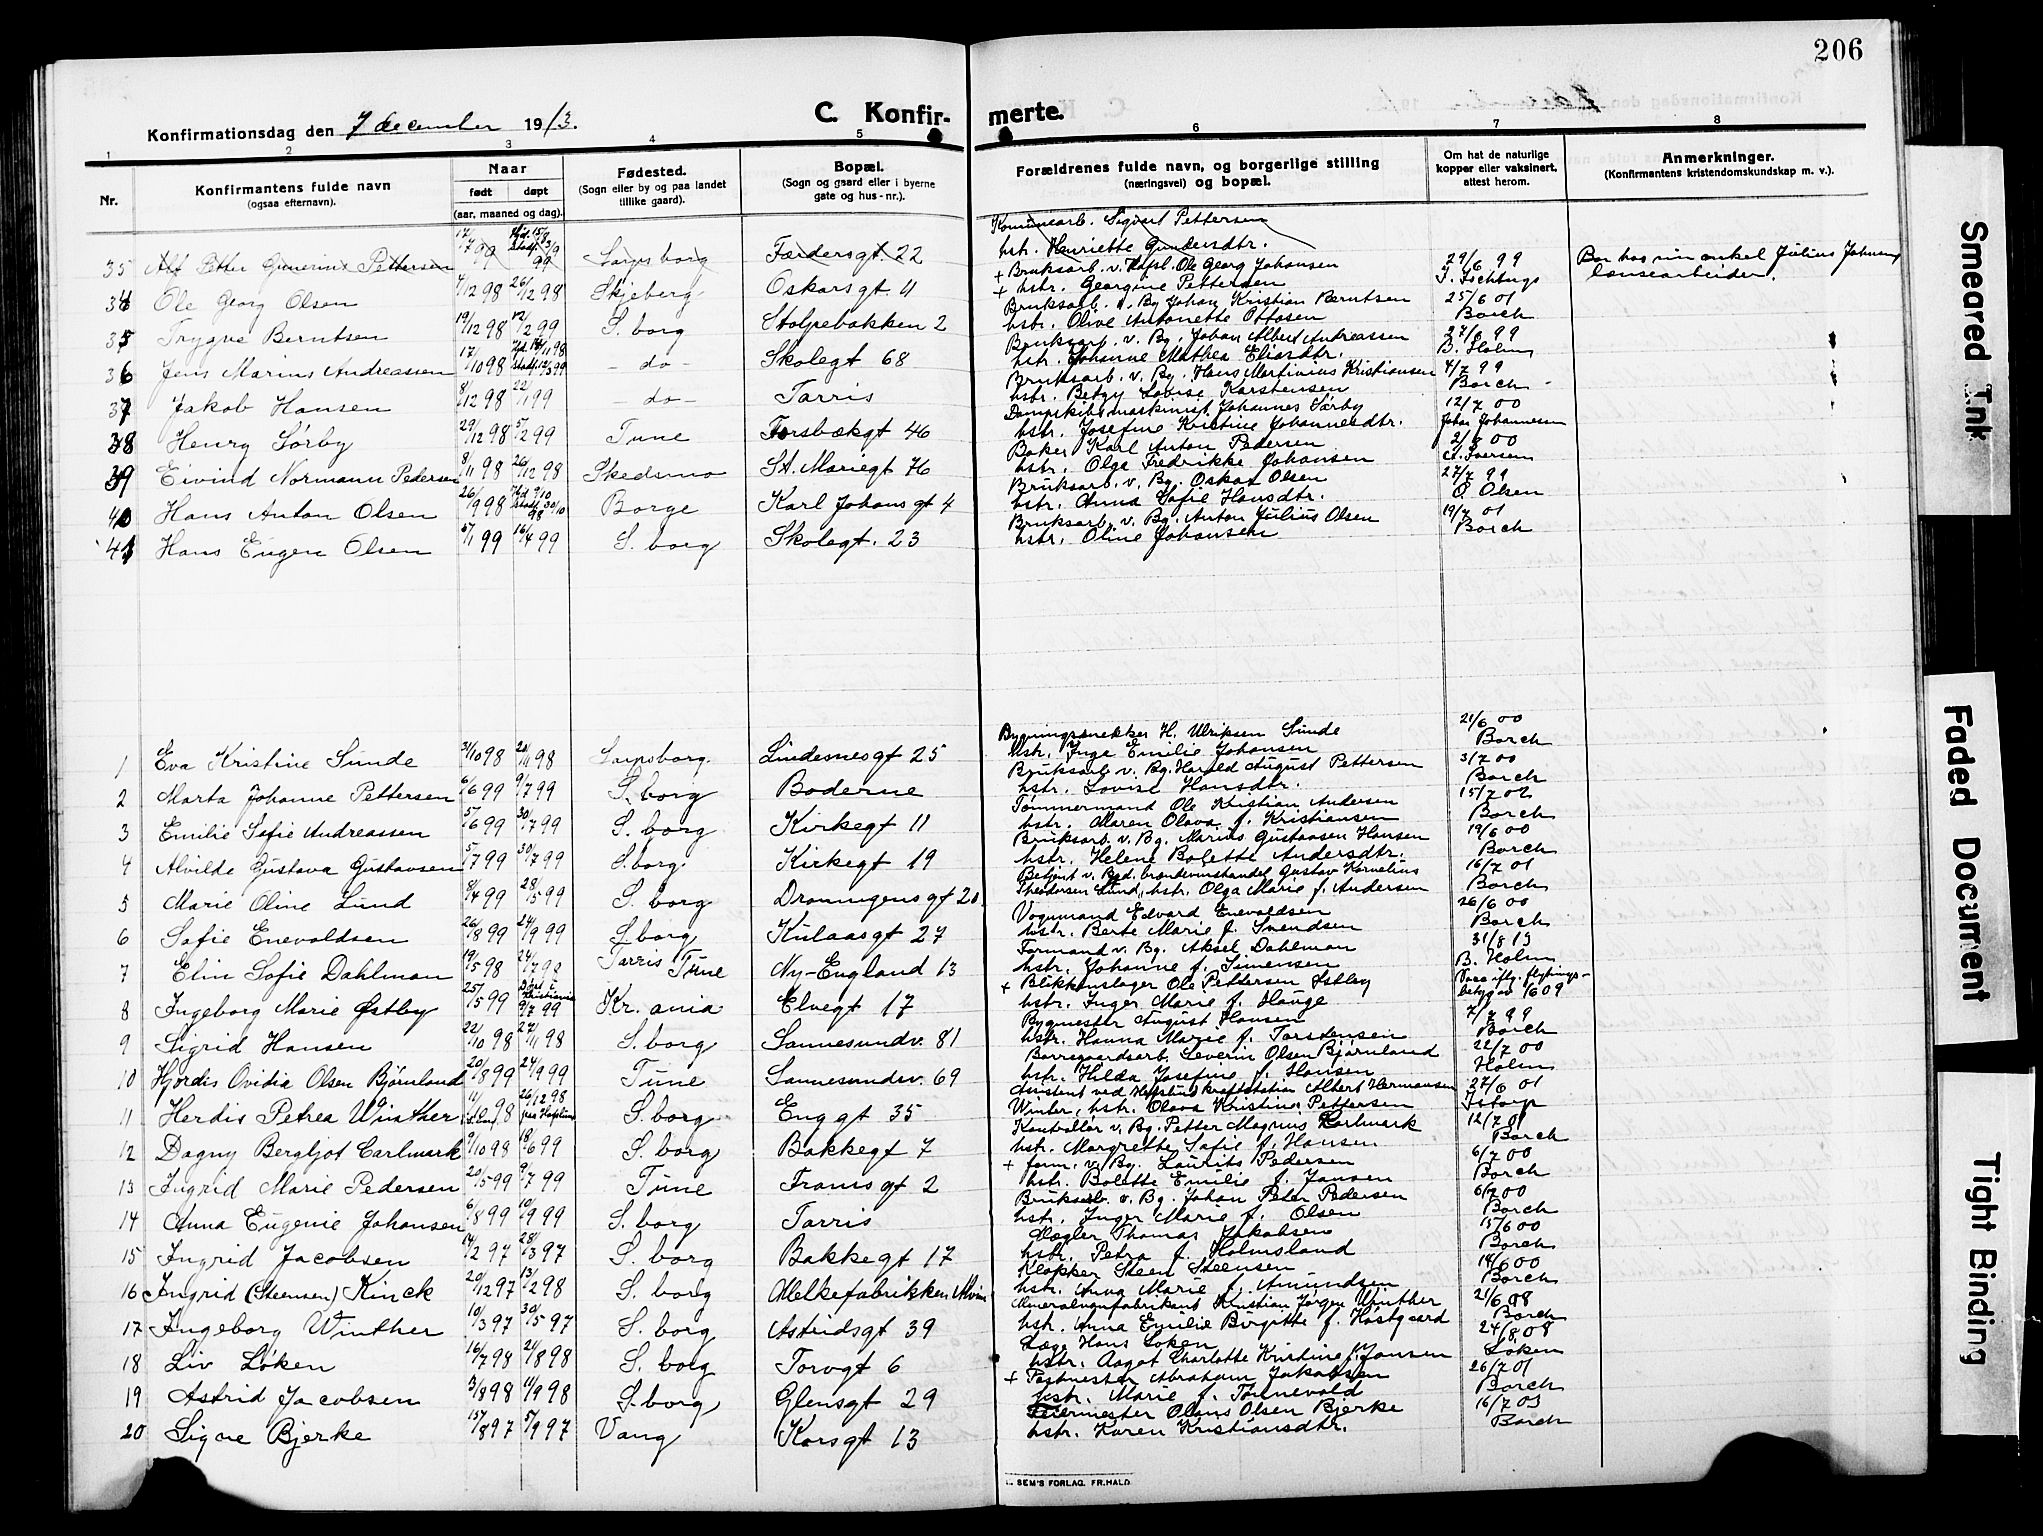 206
Konfirmationsdag den 7 december 1913.
C. Konfirmerte.
1 2 3 4 5 6 7 8
Nr.
Konfirmantens fulde navn
(ogsaa efternavn).
Naar
født døpt
(aar, maaned og dag).
Fødested.
(Sogn eller by og paa landet
tillike gaard).
Bopæl.
(Sogn og gaard eller i byerne
gate og hus-nr.).
Forældrenes fulde navn, og borgerlige stilling
(næringsvei) og bopæl.
Om hat de naturlige
kopper eller vaksinert,
attest herom.
Anmerkninger.
(Konfirmantens kristendomskundskap m. v.).
Kommunearb. Sigvart Pettersen
35 Alf Petter Gunerius Pettersen 17/7 99 Sarpsborg Færdersgt. 22 hstr. Henriette Gundersdtr.
+ Bruksarb. v. Hafsl. Ole Georg Johansen 29/6 99 Bor hos sin onkel Julius Johansen
34 Ole Georg Olsen 4/12 98 26/12 98 Skjeberg Oskarsgt. 11 + hstr. Georgine Pettersen
Bruksarb. v. Bg Johan Kristian Berntsen 25/6 01
35 Trygve Berntsen 19/12 98 12/2 99 S. borg Stolpebakken 2 hstr. Olive Antonette Ottosen Borch
Bruksarb. v. Bg. Johan Albert Andreassen 27/6 99
36 Jens Marius Andreassen 17/10 98 - do - Skolegt 68 hstr. Johanne Mathea Eliasdtr. B. Holm
Bruksarb. v. Bg. Hans Martinius Kristiansen 4/7 99
37 Jakob Hansen 8/12 98 22/1 99 - do - Tarris hstr. Betzy Lovise Karstensen Borch
Dampskibsmaskinist Johannes Sørby 12/7 00
38 Henry Sørby 29/12 98 5/2 99 Tune Forsbækgt 46 hstr. Josefine Kristine Johannesdtr. Johan Johannesen
Baker Karl Anton Pedersen 2/8 00
39 Eivind Normann Pedersen 8/11 98 26/12 98 Skedsmo St. Mariegt 76 hstr. Olga Fredrikke Johansen
Bruksarb. v. Bg. Oskar Olsen 27/7 99
40 Hans Anton Olsen 26/9 98 Borge Karl Johans gt 4 hstr. Anna Sofie Hansdtr. O. Olsen
Bruksarb. v. Bg. Anton Julius Olsen 19/7 01
41 Hans Eugen Olsen 5/1 99 16/4 99 S. borg Skolegt. 23 hstr. Oline Johansen Borch
Bygningssnekker H. Ulriksen Sunde 21/6 00
1 Eva Kristine Sunde 31/10 98 20/11 98 Sarpsborg. Lindesnesgt 25 hstr. Inga Emilie Johansen Borch
Bruksarb v. Bg. Harald August Pettersen 3/7 00
2 Marta Johanne Pettersen 6/6 99 9/7 99 S. borg Boderne hstr. Lovise Hansdtr. Borch
Tømmermand Ole Kristian Andersen 15/7 02
3 Emilie Sofie Andreassen 5/6 99 30/7 99 S. borg Kirkegt 11 hstr. Maren Olava f. Kristiansen Borch
Bruksarb. v. Bg. Marius Gustavsen Hansen 19/6 00
4 Alvilde Gustava Gustavsen 5/7 99 30/7 99 S. borg Kirkegt 19 hstr. Helene Bolette Andersdtr. Borch
Betjent v. Bgd. brændevinshandel Gustav Kornelius 16/7 01
5 Marie Oline Lund 8/4 99 28/5 99 S. borg Dronningensgt 20 Theodorsen Lund, hstr. Olga Marie f. Andersen Borch
Vognmand Edvard Enevoldsen 26/6 00
6 Sofie Enevoldsen 26/8 99 24/9 99 S. borg Kulaasgt 27 hstr. Berte Marie f. Svendsen Borch
Formand v. Bg. Aksel Dahlman 31/8 13
7 Elin Sofie Dahlman 19/5 98 24/7 98 Tarris Tune Ny-England 13 hstr. Johanne f. Simensen B. Holm
+ Blikkenslager Ole Pettersen Østby
8 Ingeborg Marie Østby 25/5 99 9/7 99 Kr.ania Elvegt 17 hstr. Inger Marie f. Hauge
Bygmester August Hansen 7/7 99
9 Sigrid Hansen 22/10 98 27/11 98 S. borg Sannesundsv. 81 hstr. Hanna Marie f. Torstensen Borch
Borregaardsarb. Severin Olsen Bjørnland 22/7 00
10 Hjørdis Ovidia Olsen Bjørnland 20/8 99 24/9 99 Tune Sannesundsv. 69 hstr. Hilda Josefine f. Hansen Holm
Assistent ved Hafslund kraftstation Albert Hermansen 27/6 01
11 Herdis Petrea Winther 26/12 98 S. borg Enggt 35 Winter, hstr. Olava Kristine Pettersen Istorp
Kontrollør v. Bg. Petter Magnus Carlmark 12/7 01
12 Dagny Bergljot Carlmark 9/10 98 18/6 99 S. borg Bakkegt 7 hstr. Margrethe Sofie f. Hansen Borch
+ form. v. Bg. Laurits Pedersen 6/7 00
13 Ingrid Marie Pedersen 20/5 99 9/7 99 Tune Framsgt 2 hstr. Bolette Emilie f. Jansen Borch
Bruksarb. v. Bg. Johan Peter Pedersen 6/7 00
14 Anna Eugenie Johansen 6/8 99 10/9 99 S. borg Tarris hstr. Inger Marie f. Olsen Borch
Mægler Thomas Jakobsen 15/6 00
15 Ingrid Jacobsen 14/2 97 28/3 97 S. borg Bakkegt 17 hstr. Petra f. Holmsland Borch
Klokker Steen Steensen 14/6 00
16 Ingrid (Steensen) Kinck 20/12 97 13/2 98 S. borg Melkefabrikken Alvim hstr. Anna Marie f. Amundsen Borch
Mineralvandfabrikant Kristian Jørgen Winther 21/6 08
17 Ingeborg Winther 10/3 97 30/5 97 S. borg Astridsgt 39 hstr. Anna Emilie Birgitte f. Høstgaard Borch
Læge Hans Løken 24/8 08
18 Liv Løken 16/7 98 21/8 98 S. borg Torvgt 6 hstr. Aagot Charlotte Kristine f. Jansen Løken
+ Abraham Jakobsen 26/7 01
19 Astrid Jacobsen 3/8 98 11/9 98 S. borg Glensgt 29 hstr. Marie f. Tønnevold Borch
Feiermester Olaus Olsen Bjerke 16/7 03
20 Signe Bjerke 15/8 97 5/9 97 Vang Korsgt 13 hstr. Karen Kristiansdtr. Borch
SEM'S FORLAG. FR.HALD.
Smeared Ink
Faded Document
Tight Binding